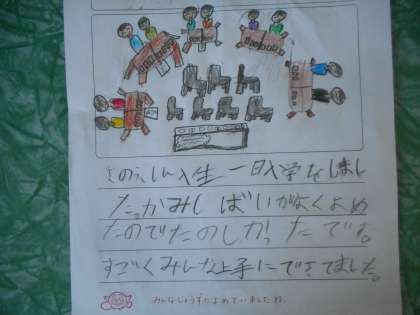 きのう、しん入生一日入学をしまし
た。かみしばいがよくよめ
たのでたのしかったです。
すごくみんな上手にできてました。
みんなじょうずによめていましたね。